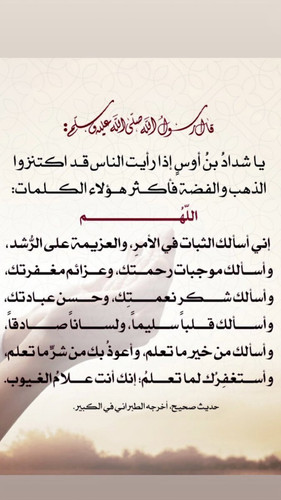 قال رسول الله صلى الله عليه وسلم:
يا شدادُ بنُ أوسٍ إذا رأيت الناس قد اكتنزوا
الذهب والفضة فأكثر هؤلاء الكلمات:
اللّهُم
إني أسألك الثبات في الأمرِ، والعزيمة على الرُّشد،
وأسألك موجبات رحمتك، وعزائم مغفرتك،
وأسألك شكر نعمتِك، وحسن عبادتك،
وأسألك قلباً سليماً، ولساناً صادقاً،
وأسألك من خير ما تعلم، وأعوذُ بك من شرِّ ما تعلم،
وأستغفِرُك لما تعلمُ؛ إنك أنت علامُ الغيوب.
حديث صحيح، أخرجه الطبراني في الكبير.